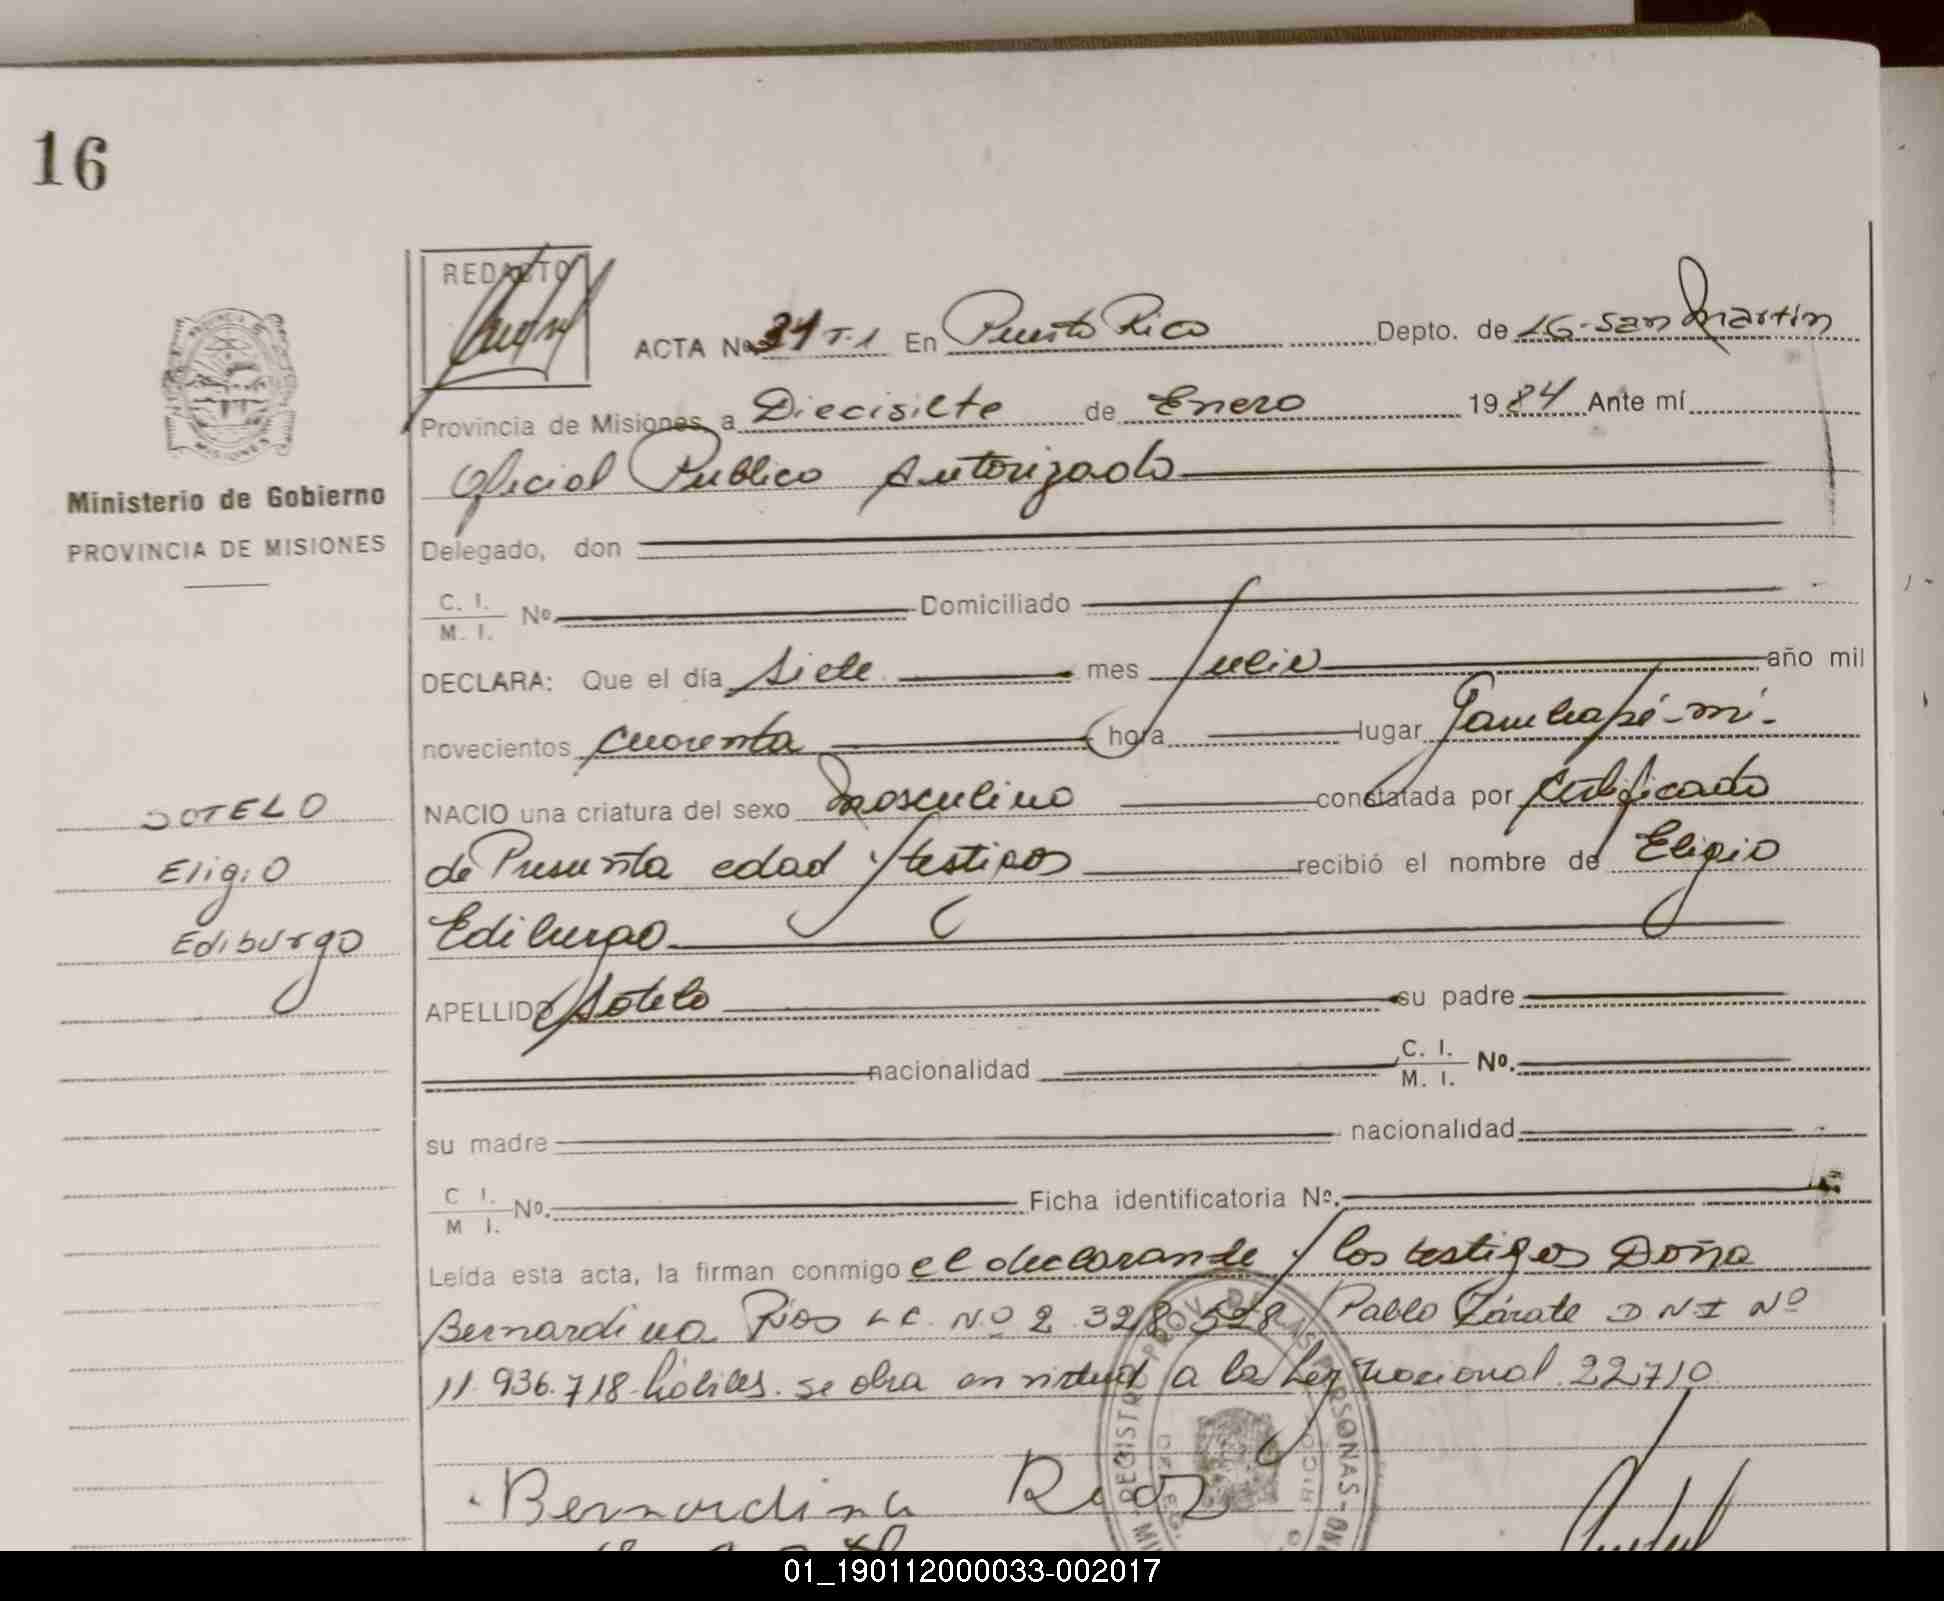 16
REDACTO
ACTA Nº 31 T.1 En Puerto Rico Depto. de LG-San Martín
Provincia de Misiones a Diecisiete de Enero 1984 Ante mí
Oficial Publico Autorizado
Ministerio de Gobierno
PROVINCIA DE MISIONES
Delegado, don
C. I.
M. I. Nº Domiciliado
DECLARA: Que el día Siete mes Julio año mil
novecientos cuarenta hora lugar
NACIO una criatura del sexo masculino constatada por certificado
de Presunta edad y testigos recibió el nombre de Eligio
Ediburgo
SOTELO
Eligio
Ediburgo
APELLIDO Sotelo su padre
nacionalidad C. I.
M. I. Nº.
su madre nacionalidad
C I.
M I. Nº. Ficha identificatoria Nº.
Leída esta acta, la firman conmigo el declarante y los testigos Doña
Bernardina Rios L C. Nº 2 328 528 Pablo Zárate D N I Nº
11.936.718 hábiles. se obra en virtud a la Ley Nacional 22710
Bernardina Rios
REGISTRO PROV. DE LAS PERSONAS
01_190112000033-002017